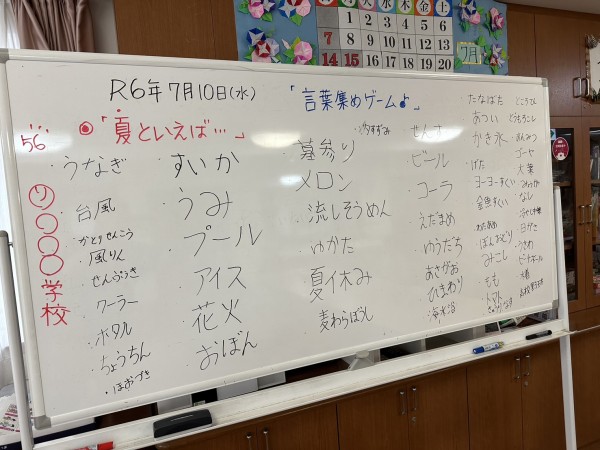 火 水 木 金 土
1 2 3 4 5 6
7 8 9 10 11 12 13
14 15 16 17 18 19 20
7月
R6年7月10日(水)
「言葉集めゲーム♪」
56
◎「夏といえば…」
り〇〇〇学校
・うなぎ
・台風
・かとりせんこう
・風りん
・せんぷうき
・クーラー
・ホタル
・ちょうちん
・ほおづき
・すいか
・うみ
・プール
・アイス
・花火
・おぼん
・夕すずみ
・墓参り
・メロン
・流しそうめん
・ゆかた
・夏休み
・麦わらぼうし
せんす
・ビール
・コーラ
・えだまめ
・ゆうだち
・あさがお
・ひまわり
・海水浴
・たなばた
・あつい
・かき氷
・げた
・ヨーヨーすくい
・金魚すくい
・わたあめ
・ぼんおどり
・みこし
・もも
・トマト
・きゅうり
・ところてん
・とうもろこし
・あんみつ
・ゴーヤ
・大葉
・なし
・冷やし中華
・うきわ
・ビーチボール